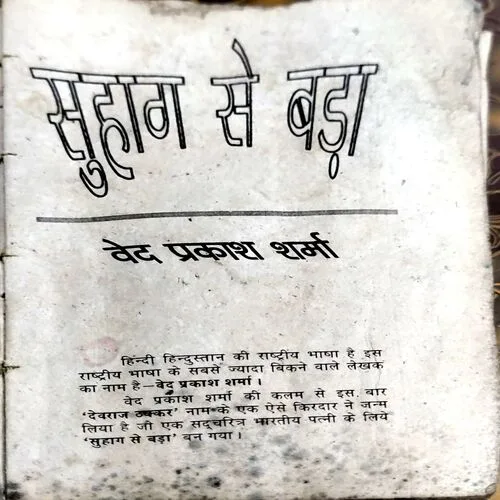 सुहाग से बड़ा
वेद प्रकाश शर्मा
हिंन्दी हिन्दुस्तान की राष्ट्रीय भाषा है इस
राष्ट्रीय भाषा के सबसे ज्यादा बिकने वाले लेखक
का नाम है—वेद प्रकाश शर्मा।
वेद प्रकाश शर्मा की कलम से इस बार
'देवराज ठक्कर' नाम के एक ऐसे किरदार ने जन्म
लिया है जी एक सद्चरित्र भारतीय पत्नी के लिये
'सुहाग से बड़ा' बन गया।